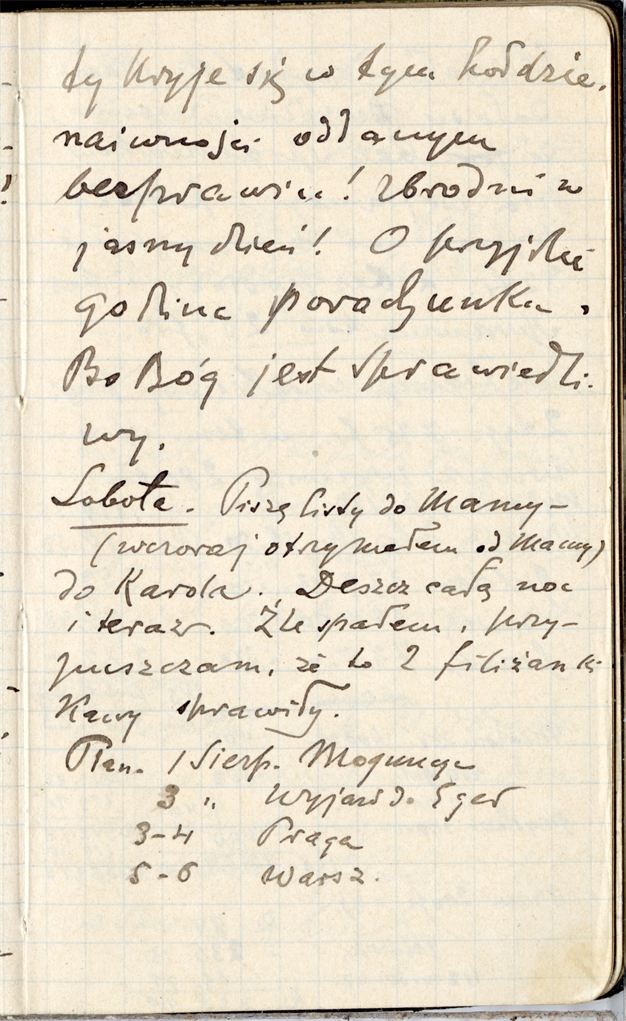 ty kryje się w tym hołdzie.
naiwności oddanym
bezprawiu! zbrodni w
jasny dzień! O przyjdzie
godzina porachunku.
Bo Bóg jest sprawiedli-
wy.
Sobota. Piszę listy do Mamy –
(wczoraj otrzymałem od Mamy)
do Karola. Deszcz całą noc
i teraz. Źle spałem, przy-
puszczam, że to 2 filiżanki
Kawy sprawiły.
Plan. 1 Sierp. Moguncya
3 " Wyjazd do Eger
3-4 Praga
5-6 Warsz.